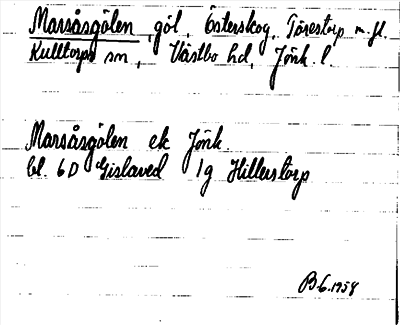 Marsåsgölen, göl, Österskog, Törestorp m.fl.
Kulltorps sn, Västbo hd, Jönk. l.
Marsåsgölen ek Jönk.
bl. 6D Gislaved 1g Hillerstorp
B-G. 1958